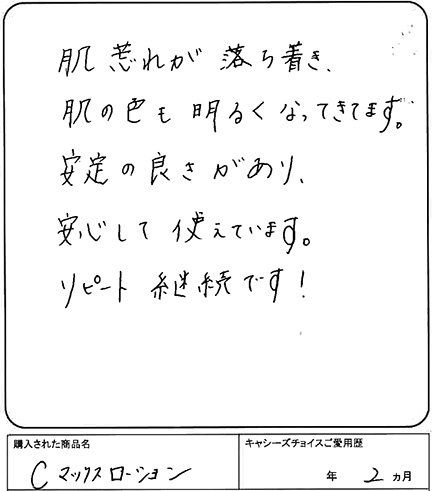 肌荒れが落ち着き、
肌の色も明るくなってきてます。
安定の良さがあり、
安心して使えています。
リピート継続です！
購入された商品名
Cマックスローション
キャシーズチョイスご愛用歴
年 2 ヵ月